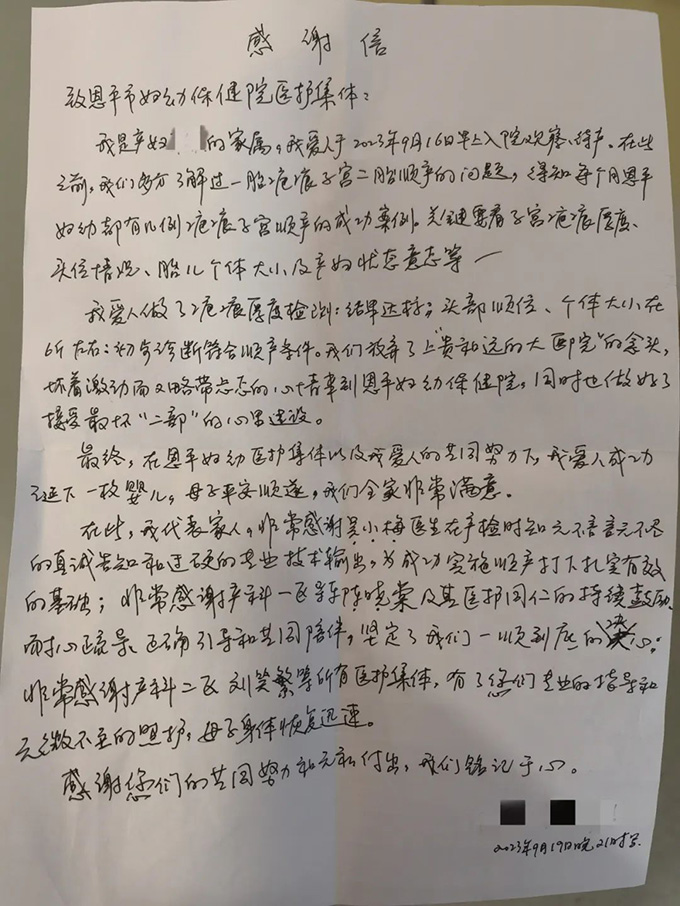 感谢信
致恩平市妇幼保健院医护集体：
我是产妇 的家属。我爱人于2023年9月16日早上入院观察、待产。在此
之前，我们多方了解过一胎疤痕子宫二胎顺产的问题，得知每个月恩平
妇幼都有几例疤痕子宫顺产的成功案例。关键要看子宫疤痕厚度、
头位情况、胎儿个体大小及产妇状态意志等一
我爱人做了疤痕厚度检测：结果达标；头部顺位、个体大小在
6斤左右：初多诊断符合顺产条件。我们放弃了上“贵和远的大医院”的念头，
怀着激动而又略带忐忑的心情来到恩平妇幼保健院，同时也做好了
接受最坏“二部”的心里建设。
最终，在恩平妇幼医护集体以及我爱人的共同努力下，我爱人成功
诞下一枚婴儿，母子平安顺遂，我们全家非常满意。
在此，我代表家人，非常感谢吴小梅医生在产检时知无不言言无不尽
的真诚告知和过硬的专业技术输出，为成功实施顺产打下扎实有效
的基础；非常感谢产科一区 陈晓棠及其医护同仁的持续鼓励、
耐心疏导、正确引导和共同陪伴，坚定了我们一顺到底的决心；
非常感谢产科二区刘笑繁等所有医护集体，有了您们专业的指导和
无微不至的照护，母子身体恢复迅速。
感谢您们的共同努力和无私付出，我们铭记于心。
2023年9月19日晚21时字